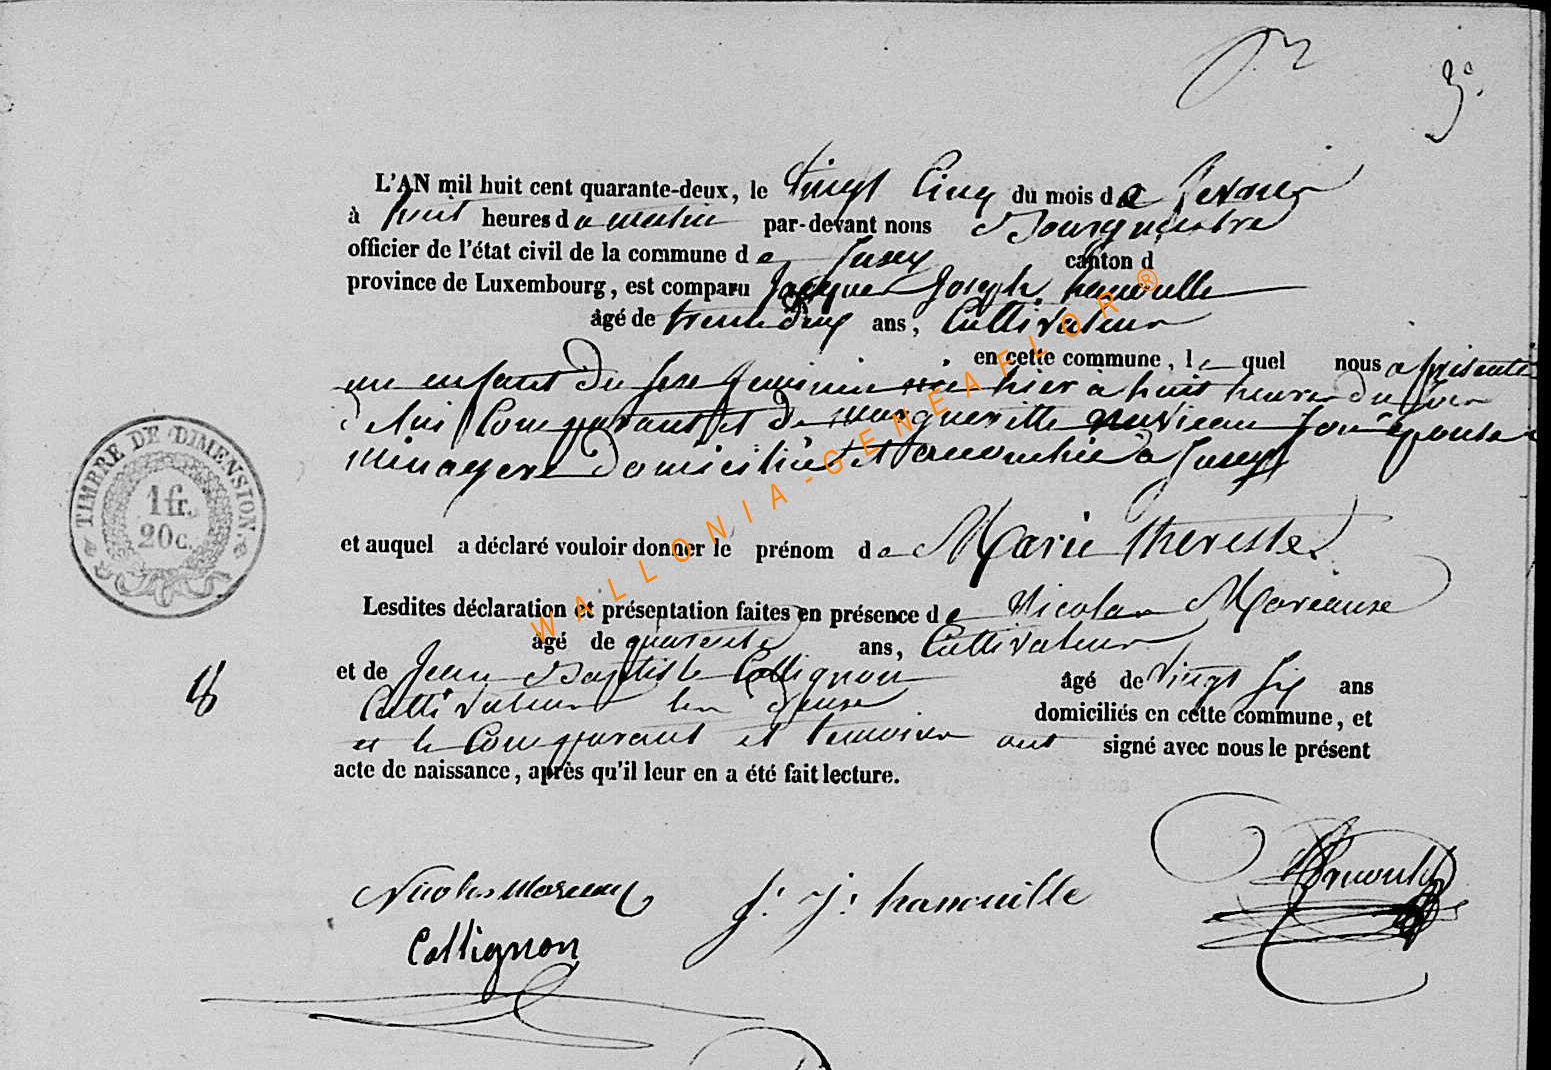 3e
L'AN mil huit cent quarante-deux, le vingt Cinq du mois de fevrier
à huit heures du matin par-devant nous Bourguestre
officier de l'état civil de la commune de Jusey canton d
province de Luxembourg, est comparu Jacques Joseph hanouille
âgé de trente deux ans, Cultivateur
en cette commune, le quel nous a présenté
un enfant du sexe feminin né hier à huit heures du soir
de lui Comparant et de margueritte son épouse
ménagere domicilié et à Jusey
et auquel a déclaré vouloir donner le prénom de Marie therese
Lesdites déclaration et présentation faites en présence de Nicolas
âgé de quarente ans, Cultivateur
et de Jean Baptiste Collignon âgé de vingt six ans
Cultivateur domiciliés en cette commune, et
et le Comparant et temoins ont signé avec nous le présent
acte de naissance, après qu'il leur en a été fait lecture.
TIMBRE DE DIMENSION.
1 fr.
20 c.
18
Nicolas
J. J. hanouille
Collignon
WALLONIA-GENEAFLOR®